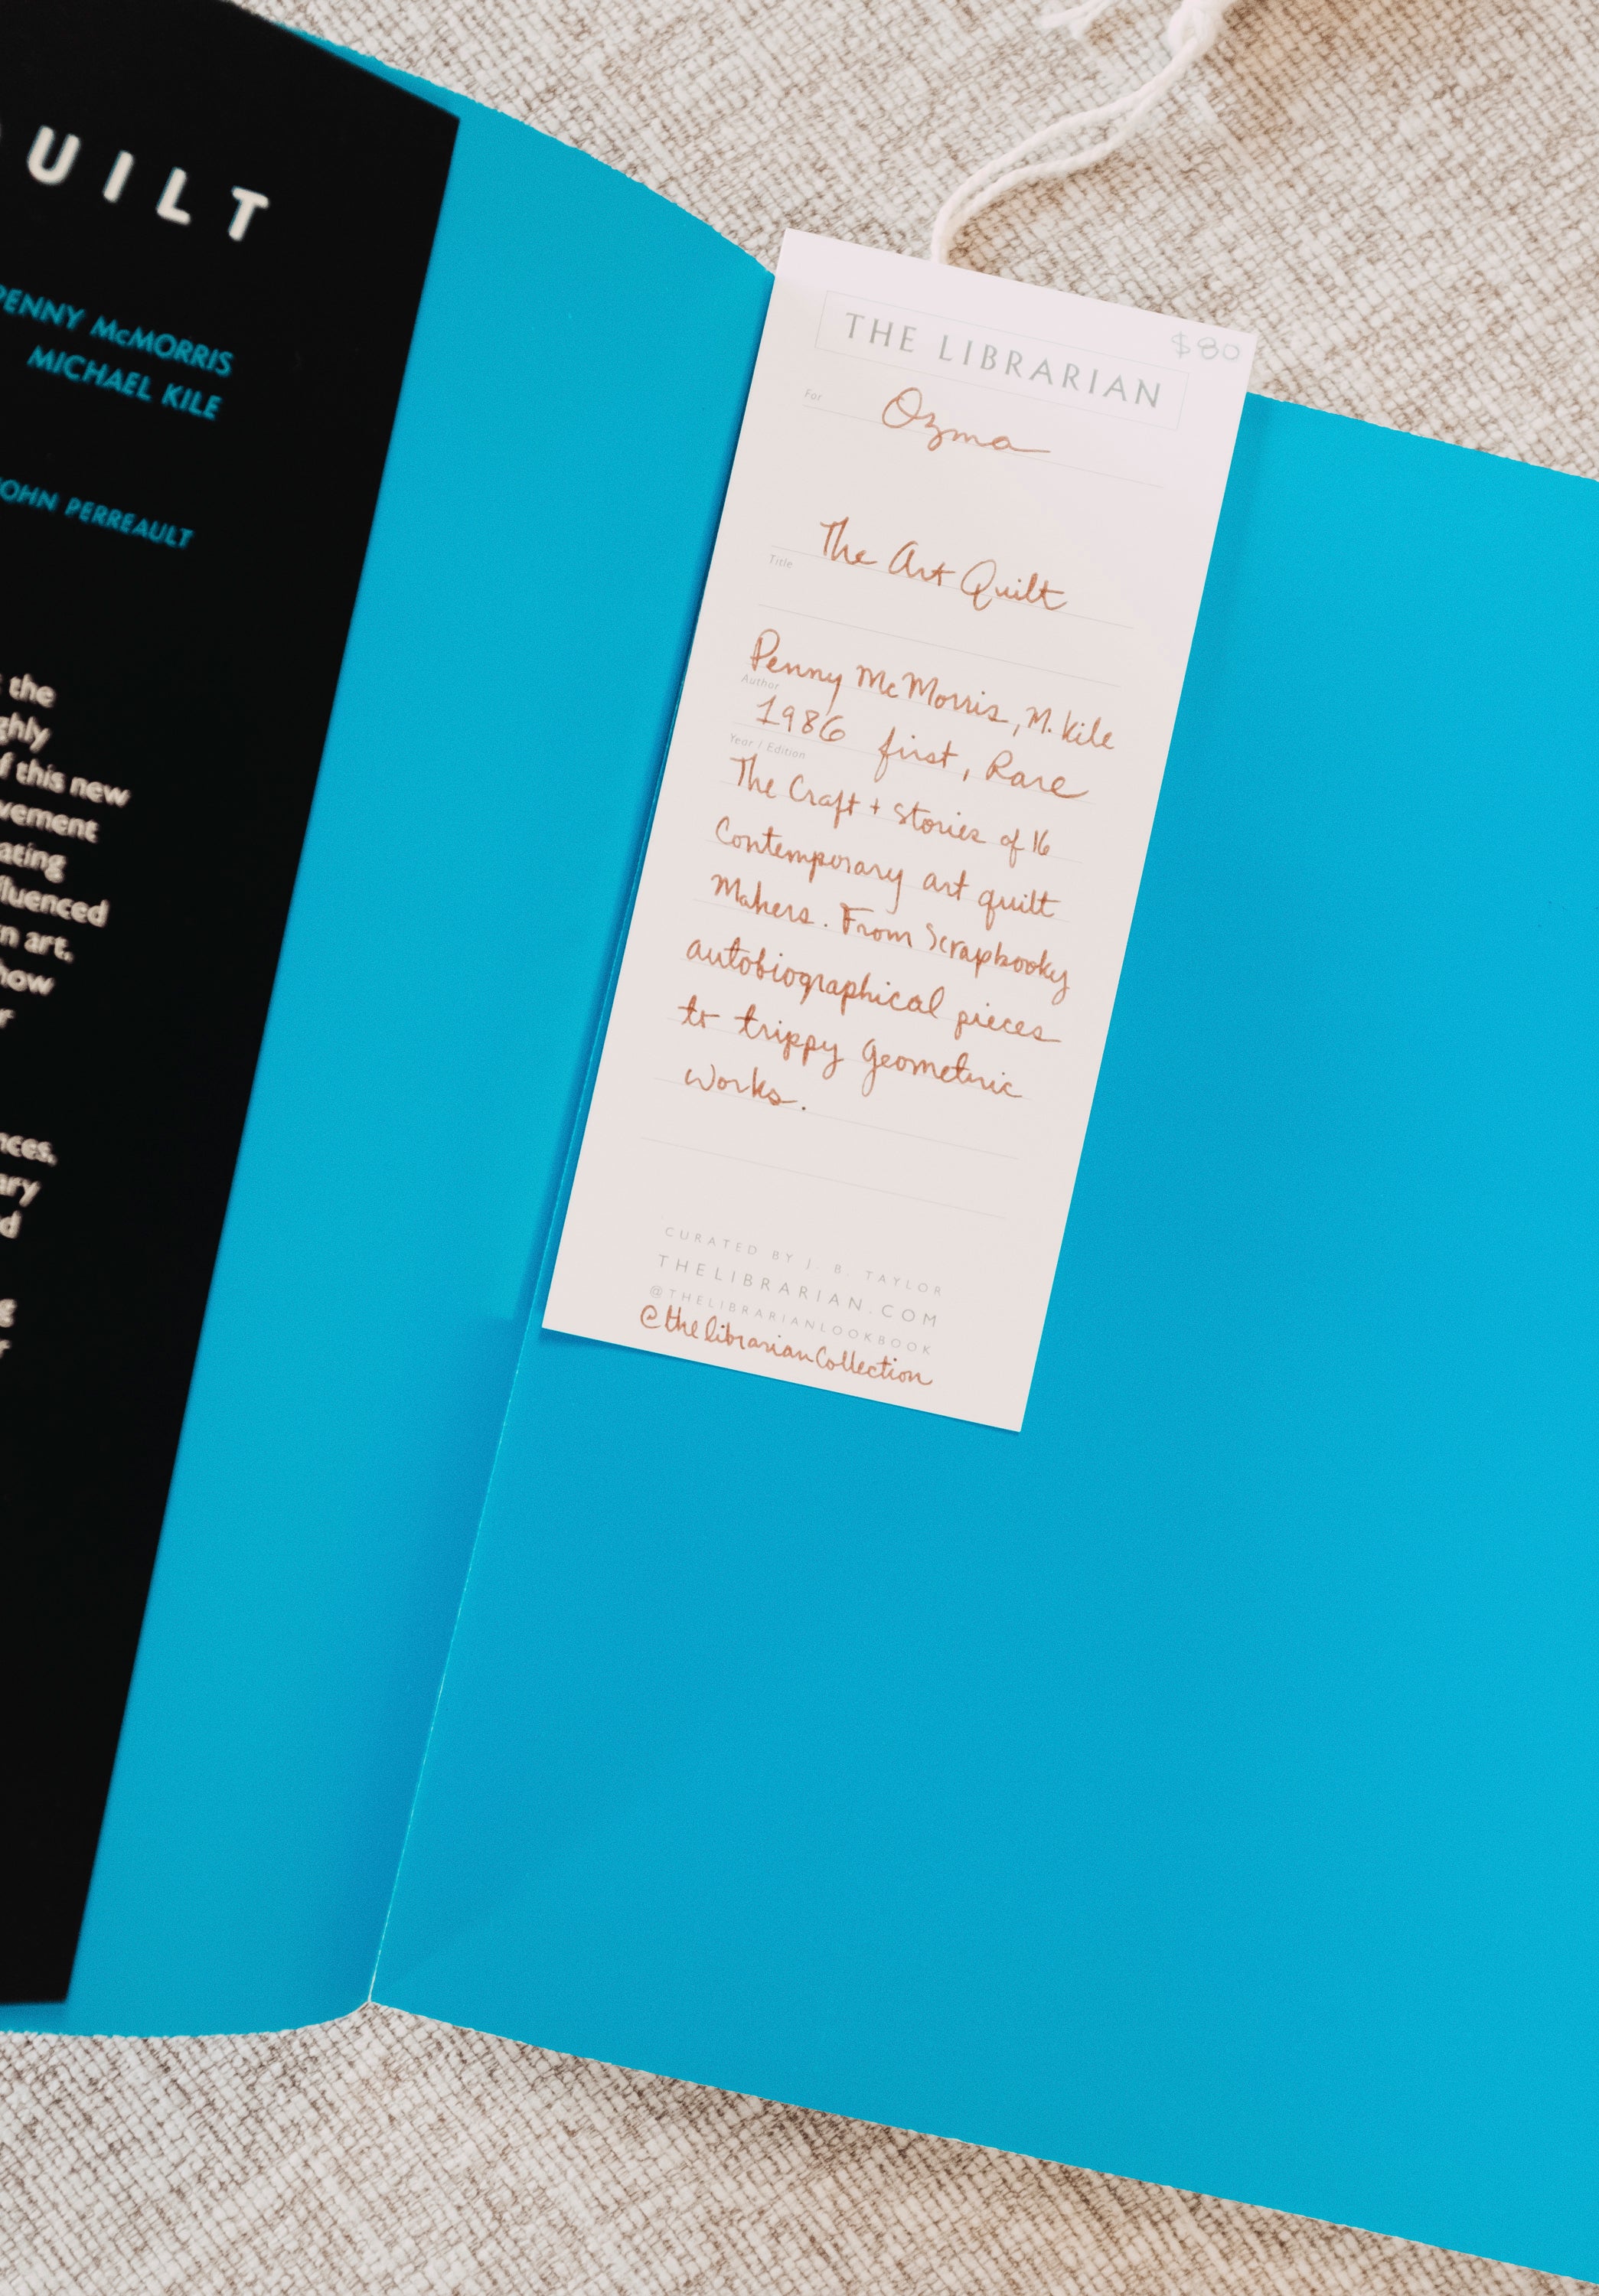 UILT
PENNY McMORRIS
MICHAEL KILE
JOHN PERREAULT
the
ghly
f this new
vement
ating
fluenced
n art.
how
r
nces.
ary
d
g
r
THE LIBRARIAN
$80
For Ozma
The Art Quilt
Title
Penny McMorris, M. Kile
Author
1986 first, Rare
Year / Edition
The Craft + Stories of 16
Contemporary art quilt
Makers. From Scrapbooky
autobiographical pieces
to trippy Geometric
Works.
CURATED BY J. B. TAYLOR
THELIBRARIAN.COM
@THELIBRARIANLOOKBOOK
@thelibrarianCollection